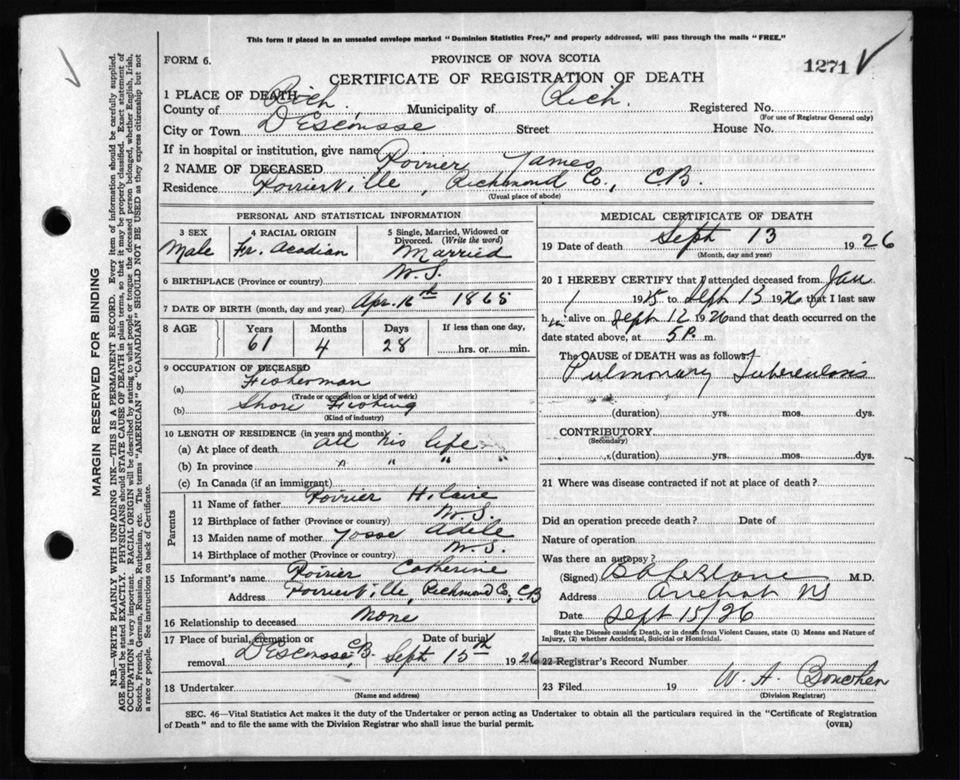 This form if placed in an unsealed envelope marked "Dominion Statistics Free," and properly addressed, will pass through the mails "FREE."
FORM 6.
PROVINCE OF NOVA SCOTIA
1271
CERTIFICATE OF REGISTRATION OF DEATH
1 PLACE OF DEATH
County of Rich. Municipality of Rich. Registered No.
(For use of Registrar General only)
City or Town D'Escousse Street House No.
If in hospital or institution, give name
2 NAME OF DECEASED Poirier James
Residence Poirierville, Richmond Co., C.B.
(Usual place of abode)
PERSONAL AND STATISTICAL INFORMATION
3 SEX 4 RACIAL ORIGIN 5 Single, Married, Widowed or Divorced. (Write the word)
Male Fr. Acadian Married
6 BIRTHPLACE (Province or country) N.S.
7 DATE OF BIRTH (month, day and year) Apr. 16th 1865
8 AGE Years Months Days If less than one day,
61 4 28 hrs. or min.
9 OCCUPATION OF DECEASED
(a) Fisherman
(Trade or occupation or kind of work)
(b) Shore Fishing
(Kind of industry)
10 LENGTH OF RESIDENCE (in years and months)
(a) At place of death all his life
(b) In province " " " "
(c) In Canada (if an immigrant)
Parents
11 Name of father Poirier Hilaire
12 Birthplace of father (Province or country) N.S.
13 Maiden name of mother Josse Adele
14 Birthplace of mother (Province or country) N.S.
15 Informant's name Poirier Catherine
Address Poirierville, Richmond Co., C.B
16 Relationship to deceased None
17 Place of burial, cremation or removal D'Escousse, C.B. Date of burial Sept 15th 1926
18 Undertaker
(Name and address)
MEDICAL CERTIFICATE OF DEATH
19 Date of death Sept 13 1926
(Month, day and year)
20 I HEREBY CERTIFY that I attended deceased from Jan
1 1915 to Sept 13 1926 that I last saw
him alive on Sept 12 1926 and that death occurred on
date stated above, at 5 P. m.
The CAUSE OF DEATH was as follows:
Pulmonary Tuberculosis
(duration) yrs. mos. dys.
CONTRIBUTORY
(Secondary)
(duration) yrs. mos. dys.
21 Where was disease contracted if not at place of death?
Did an operation precede death? Date of
Nature of operation
Was there an autopsy?
(Signed) M.D.
Address Arichat NS
Date Sept 15/26
State the Disease causing Death, or in death from Violent Causes, state (1) Means and Nature of Injury, (2) whether Accidental, Suicidal or Homicidal.
22 Registrar's Record Number
23 Filed 19 W. A.
(Division Registrar)
SEC. 46—Vital Statistics Act makes it the duty of the Undertaker or person acting as Undertaker to obtain all the particulars required in the "Certificate of Registration
of Death" and to file the same with the Division Registrar who shall issue the burial permit. (OVER)
MARGIN RESERVED FOR BINDING
N.B.—WRITE PLAINLY WITH UNFADING INK—THIS IS A PERMANENT RECORD. Every item of information should be carefully supplied.
AGE should be stated EXACTLY. PHYSICIANS should STATE CAUSE OF DEATH in plain terms, so that it may be properly classified. Exact statement of
OCCUPATION is very important. RACIAL ORIGIN will be described by stating to what people or tongue the deceased person belonged, whether English, Irish,
Scotch, French, German, Russian, Ruthenian, etc. The terms "AMERICAN" or "CANADIAN" SHOULD NOT BE USED as they express citizenship but not
a race or people. See instructions on back of Certificate.